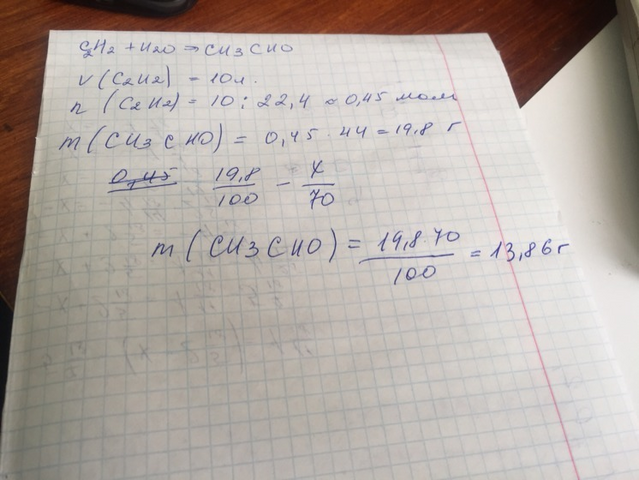 C2H2 + H2O → CH3CHO
V (C2H2) = 10л.
n (C2H2) = 10 : 22,4 ≈ 0,45 моль
m (CH3CHO) = 0,45 · 44 = 19,8 г
0,45 19,8/100 - x/70
m (CH3CHO) = 19,8·70/100 = 13,86г